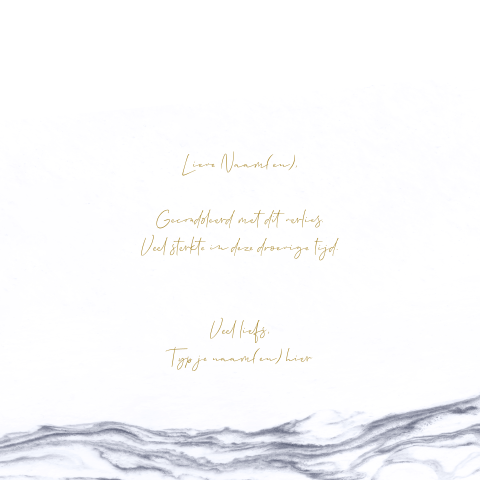 Lieve Naam(en),
Gecondoleerd met dit verlies
Veel sterkte in deze droevige tijd
Veel liefs,
Typ je naam(en) hier